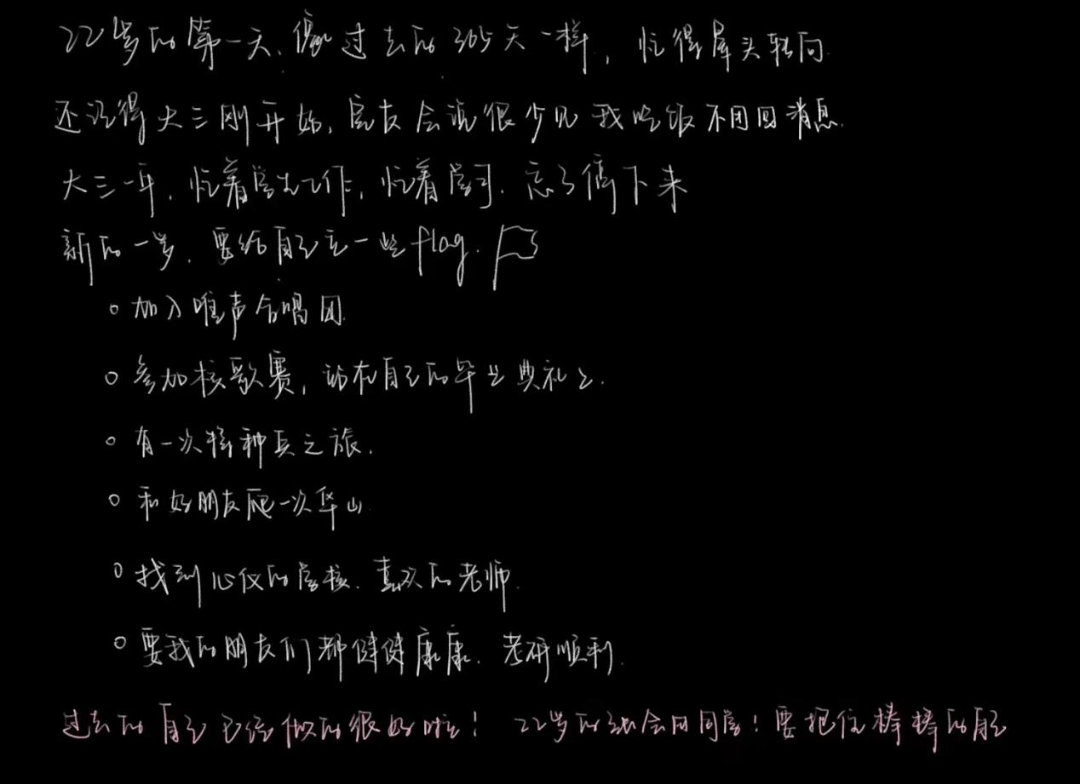 22岁的第一天,像过去的365天一样,忙得晕头转向
还记得大三刚开始,室友会说很少见我吃饭不用回消息.
大三一年,忙着学生工作,忙着学习.忘了停下来
新的一岁,要给自己立一些flag.
加入唯声合唱团
参加校歌赛,站在自己的毕业典礼上.
有一次特种兵之旅.
和好朋友爬一次华山
找到心仪的学校.喜欢的老师.
要我的朋友们都健健康康.考研顺利.
过去的自己已经做的很好啦! 22岁的同学!要把住棒棒的自己